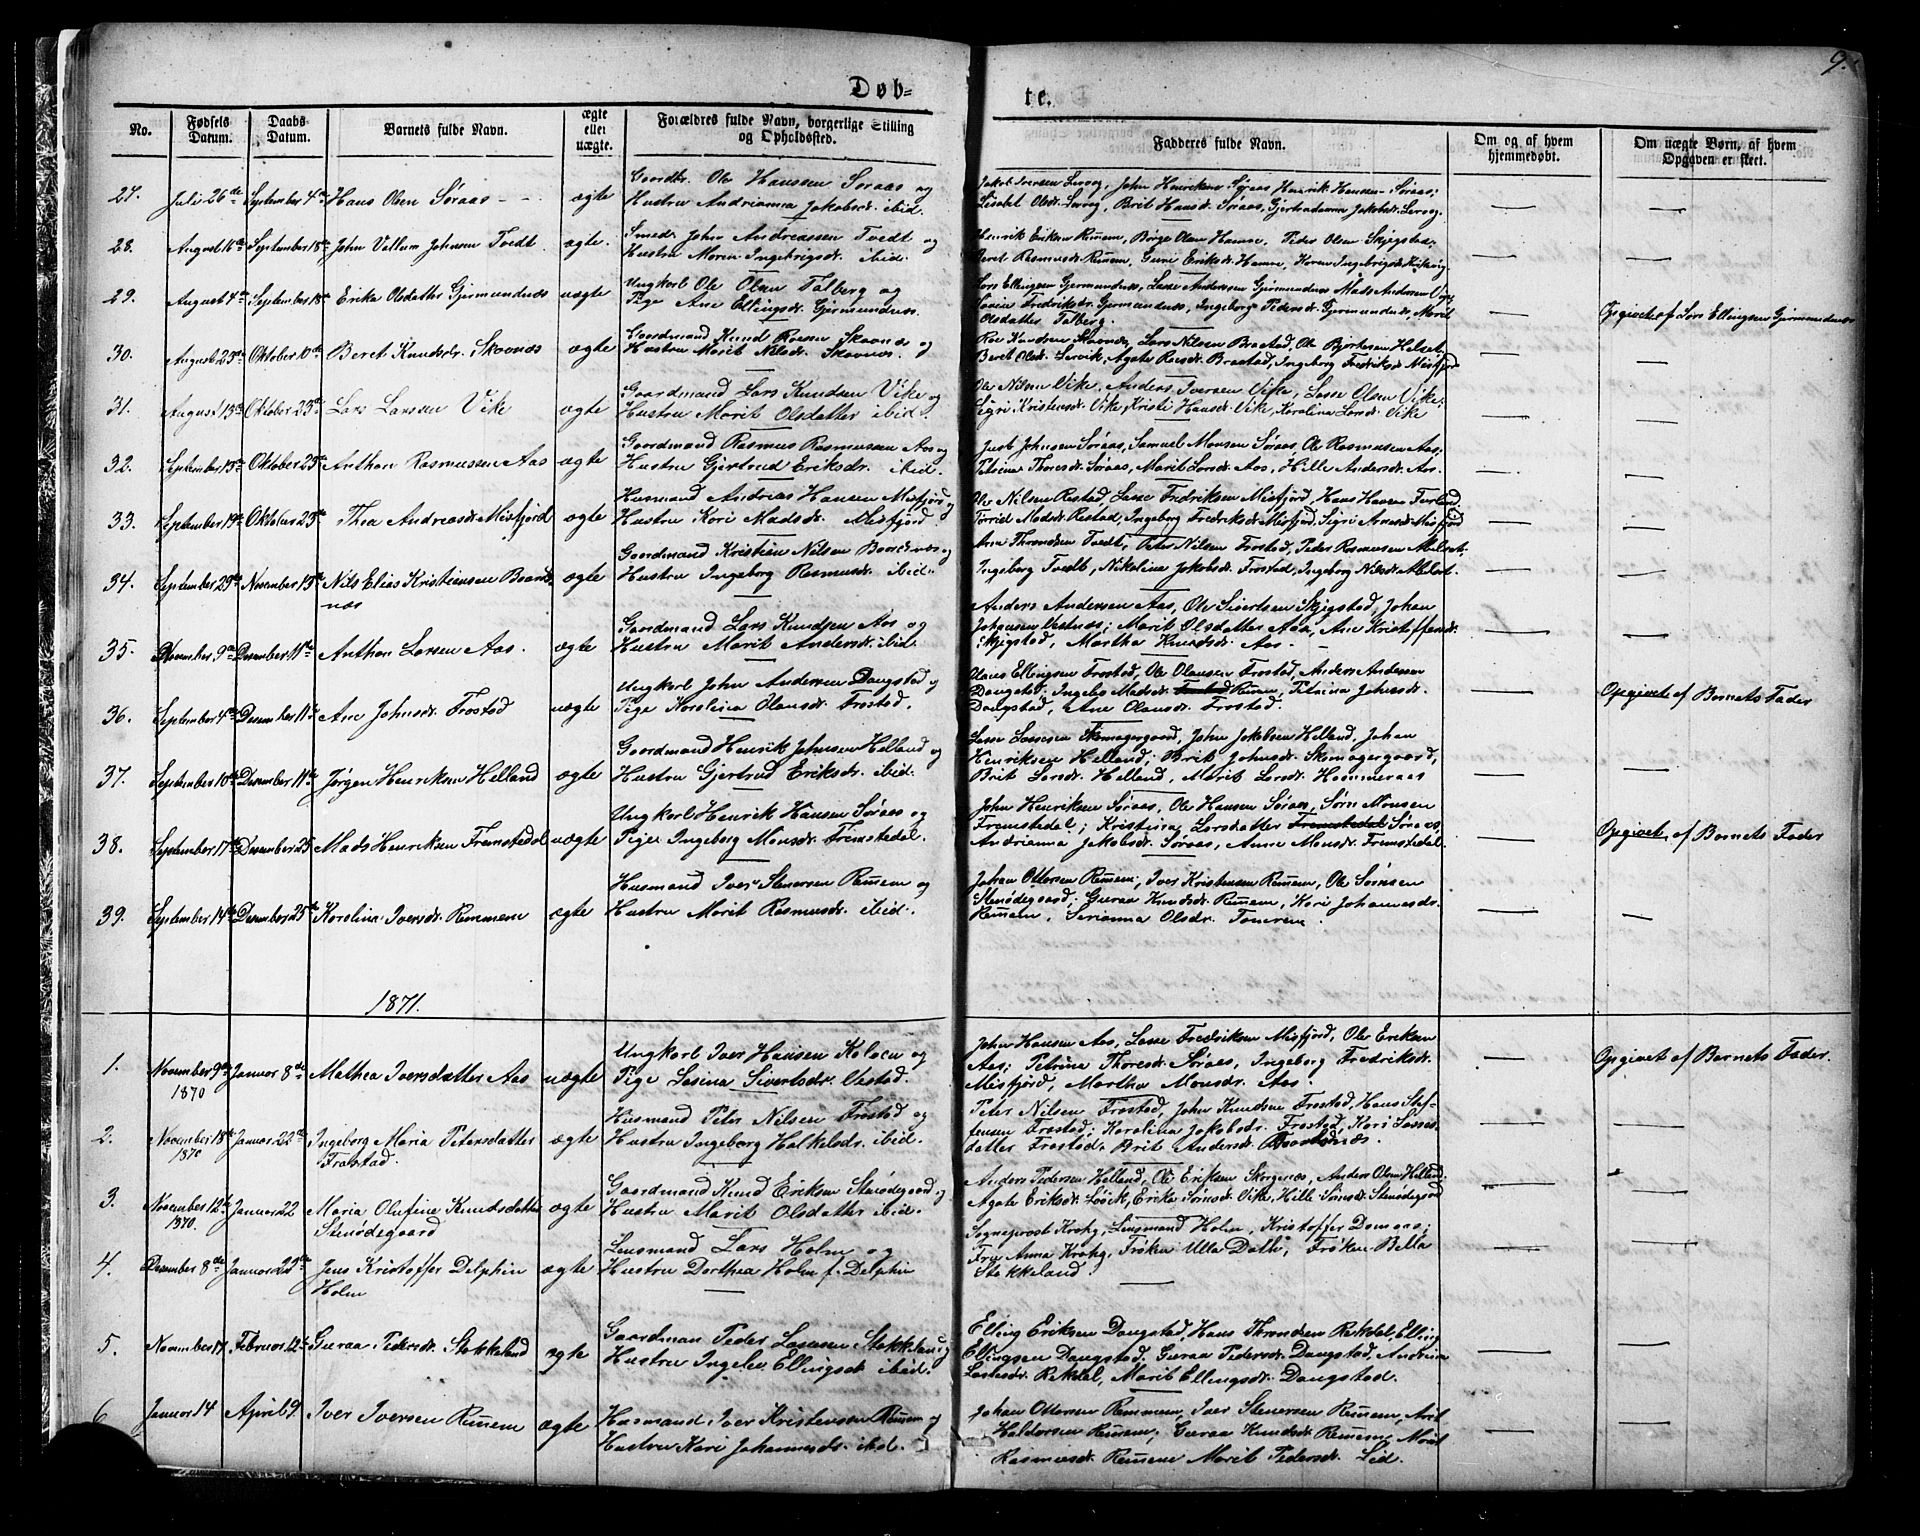 9.
Døb-
te.
No.
Fødsels Datum.
Daabs Datum.
Barnets fulde Navn.
ægte eller uægte.
Forældres fulde Navn, borgerlige Stilling og Opholdssted.
Fadderes fulde Navn.
Om og af hvem hjemmedøbt.
Om uægte Børn, af hvem Opgaven er skeet.
27. Juli 26de September 4de Hans Olsen Søraas ægte Gaardbr. Ole Hanssen Søraas og
Hustru Andrianna Jakobsdr. ibid.
Jakob Iversen Lervog, John Henriksen Søraas, Henrik Hansen Søraas;
Lisabet Olsdr. Lervog, Brit Hansdr. Søraas, Gjertru Anna Jakobsdr. Lervog.
28. August 16de September 18de John Vellum Johnsen Tvedt ægte. Smed John Andreassen Tvedt og
Hustru Maren Ingebrigsdr. ibid.
Henrik Eriksen Remem, Børge Olsen Hamne, Peder Olsen Skjegstad;
Beret Rasmusdr. Remem, Guri Eriksdr. Hamne, Karen Ingebrigsdr.
29. August 4de September 18de Erika Olsdatter Gjermundnæs uægte Ungkarl Ole Olsen Talberg og
Pige Ane Ellingsdr. Gjermundnæs.
Lars Ellingsen Gjermundnæs, Lasse Andersen Gjermundnæs, Mads Andersen
Fredriksdr. Gjermundnæs, Ingeborg Pedersdr. Gjermundnæs, Marit
Olsdatter Talberg.
Opgivet af Lars Ellingsen Gjermundnæs
30. August 23de Oktober 10de Beret Knudsdr. Skavnæs ægte Gaardmand Knud Roesen Skavnæs og
Hustru Marit Nilsdr. Skavnæs.
Roe Knudsen Skavnæs, Lars Nilsen Brastad, Ole Helset;
Beret Olsdr. Lervik, Agate Roesdr. Brastad, Ingeborg Fredriksdr. Misfjord
31. August 13de Oktober 23de Lars Larsen Vike ægte Gaardmand Lars Knudsen Vike og
Hustru Marit Olsdatter ibid.
Ole Nilsen Vike, Anders Iversen Vike, Lasse Olsen Vike;
Sigri Kristensdr. Vike, Kristi Hansdr. Vike, Karolina Larsdr. Vike
32. September 13de Oktober 23de Anthon Rasmussen Aas ægte Gaardmand Rasmus Rasmussen Aas og
Hustru Gjertrud Eriksdr. ibid.
Just Johnsen Søraas, Samuel Monsen Søraas, Ole Rasmusen Aas;
Petrina Thoresdr. Søraas, Marit Larsdr. Aas, Hille Andersdr. Aas.
33. September 19de Oktober 23de Thea Andreasdr. Misfjord ægte Husmand Andreas Hansen Misfjord og
Hustru Kari Madsdr. Misfjord
Ole Nilsen Restad, Lasse Fredriksen Misfjord, Hans Hansen
Torrid Madsdr. Restad, Ingeborg Fredriksdr. Misfjord, Sigri Arnesdr. Misfjord
34. September 29de November 13de Nils Elias Kristiensen Baards-
næs ægte Gaardmand Kristien Nilsen Baardsnæs og
Hustru Ingeborg Rasmusdr. ibid.
Arne Throndsen Tvedt, Peter Nilsen Frostad, Peder Rasmusen Melset;
Ingeborg Tvedt, Nikolina Jakobsdr. Frostad, Ingeborg Nilsdr. Melset.
35. November 9de Desember 11de Anthon Larsen Aas. ægte Gaardmand Lars Knudsen Aas og
Hustru Marit Andersdr. ibid.
Anders Andersen Aas, Ole Sivertsen Skjegstad, Johan
Johansen Vestnæs; Marit Olsdatter Aas, Ane Kristoffersdr.
Skjegstad, Martha Knudsdr. Aas.
36. September 4de Desember 11de Ane Johnsdr. Frostad uægte Ungkarl John Andersen Daugstad og
Pige Karolina Olausdr. Frostad.
Olaus Ellingsen Frostad, Ole Olausen Frostad, Anders Andersen
Daugstad; Ingeb. Madsdr. Frostad Remem, Petrina Johnsdr.
Daugstad, Ane Olausdr. Frostad.
Opgivet af Barnets Fader
37. September 10de Desember 11de Jørgen Henriksen Helland ægte Gaardmand Henrik Johnsen Helland og
Hustru Gjertrud Eriksdr. ibid.
Lasse Lassesen Skomagergaard, John Jakobsen Helland, Johan
Henriksen Helland; Brit Johnsdr. Skomagergaard,
Brit Larsdr. Helland, Marit Larsdr. Hammeraas
38. September 17de Desember 25de Mads Henriksen Fremstedal uægte Ungkarl Henrik Hansen Søraas og
Pige Ingeborg Monsdr. Fremstedal.
John Henriksen Søraas, Ole Hansen Søraas, Sørn Monsen
Fremstedal; Kristiina Larsdatter Fremstedal Søraas,
Andrianna Jakobsdr. Søraas, Anne Monsdr. Fremstedal.
Opgivet af Barnets Fader
39. September 14de Desember 25de Karolina Iversdr. Remmem ægte Husmand Iver Stenersen Remem og
Hustru Marit Rasmusdr. ibid.
Johan Ottersen Remem, Iver Kristensen Remem, Ole Sørnsen
Stenødegaard; Guraa Knudsdr. Remem, Kari Johannesdr.
Remem, Serianna Olsdr.
1871.
1. November 9de
1870 Januar 8de Mathea Iversdatter Aas uægte Ungkarl Iver Hansen Kolven og
Pige Lasina Sivertsdr. Vestad.
John Hansen Aas, Lasse Fredriksen Misfjord, Ole Eriksen
Aas; Petrina Thoresdr. Søraas, Ingeborg Fredriksdr.
Misfjord, Martha Monsdr. Aas.
Opgivet af Barnets Fader.
2. November 18de
1870 Januar 22de Ingeborg Maria Petersdatter
Frostad. ægte Husmand Peter Nilsen Frostad og
Hustru Ingeborg Halkelsdr. ibid.
Peter Nilsen Frostad, John Knudsen Frostad, Hans Stef-
fensen Frostad; Karolina Jakobsdr. Frostad, Kari Lasses-
datter Frostad, Brit Andersdr. Baardsnæs.
3. November 12de
1870. Januar 22 Maria Olufine Knudsdatter
Stenødegaard ægte Gaardmand Knud Eriksen Stenødegaard og
Hustru Marit Olsdatter ibid.
Anders Pedersen Helland, Ole Eriksen Skorgenæs, Anders Olsen Helland;
Agate Eriksdr. Løvik, Erika Sørnsdr. Vike, Hille Sørnsdr. Stenødegaard
4. Desember 8de Januar 22de Jens Kristoffer Delphin
Holm ægte Lensmand Lars Holm og
Hustru Dorthea Holm f. Delphin
Sogneprost Krohg, Lensmand Holm, Kristoffer Domaas;
Fru Anna Krohg, Frøken Ulla Dath, Frøken Bella
Stokkeland.
5. November 17 Februar 12te Guraa Pedersdr. Stokkeland ægte Gaardman Peder Lassesen Stokkeland og
Hustru Ingelev Ellingsdr. ibid.
Elling Eriksen Daugstad, Hans Throndsen Rekdal, Elling
Ellingsen Daugstad, Guraa Pedersdr. Daugstad, Andrina
Lassesdr. Rekdal, Marit Ellingsdr. Daugstad.
6. Januar 14 April 9. Iver Iversen Remem ægte Husmand Iver Kristensen Remem og
Hustru Kari Johannesdr. ibid.
Johan Ottersen Remmem, Iver Stenersen Remem, Arit
Haldorsen Remem, Guraa Knudsdr. Remem, Marit
Rasmusdr. Remem Marit Pedersdr. Lid.